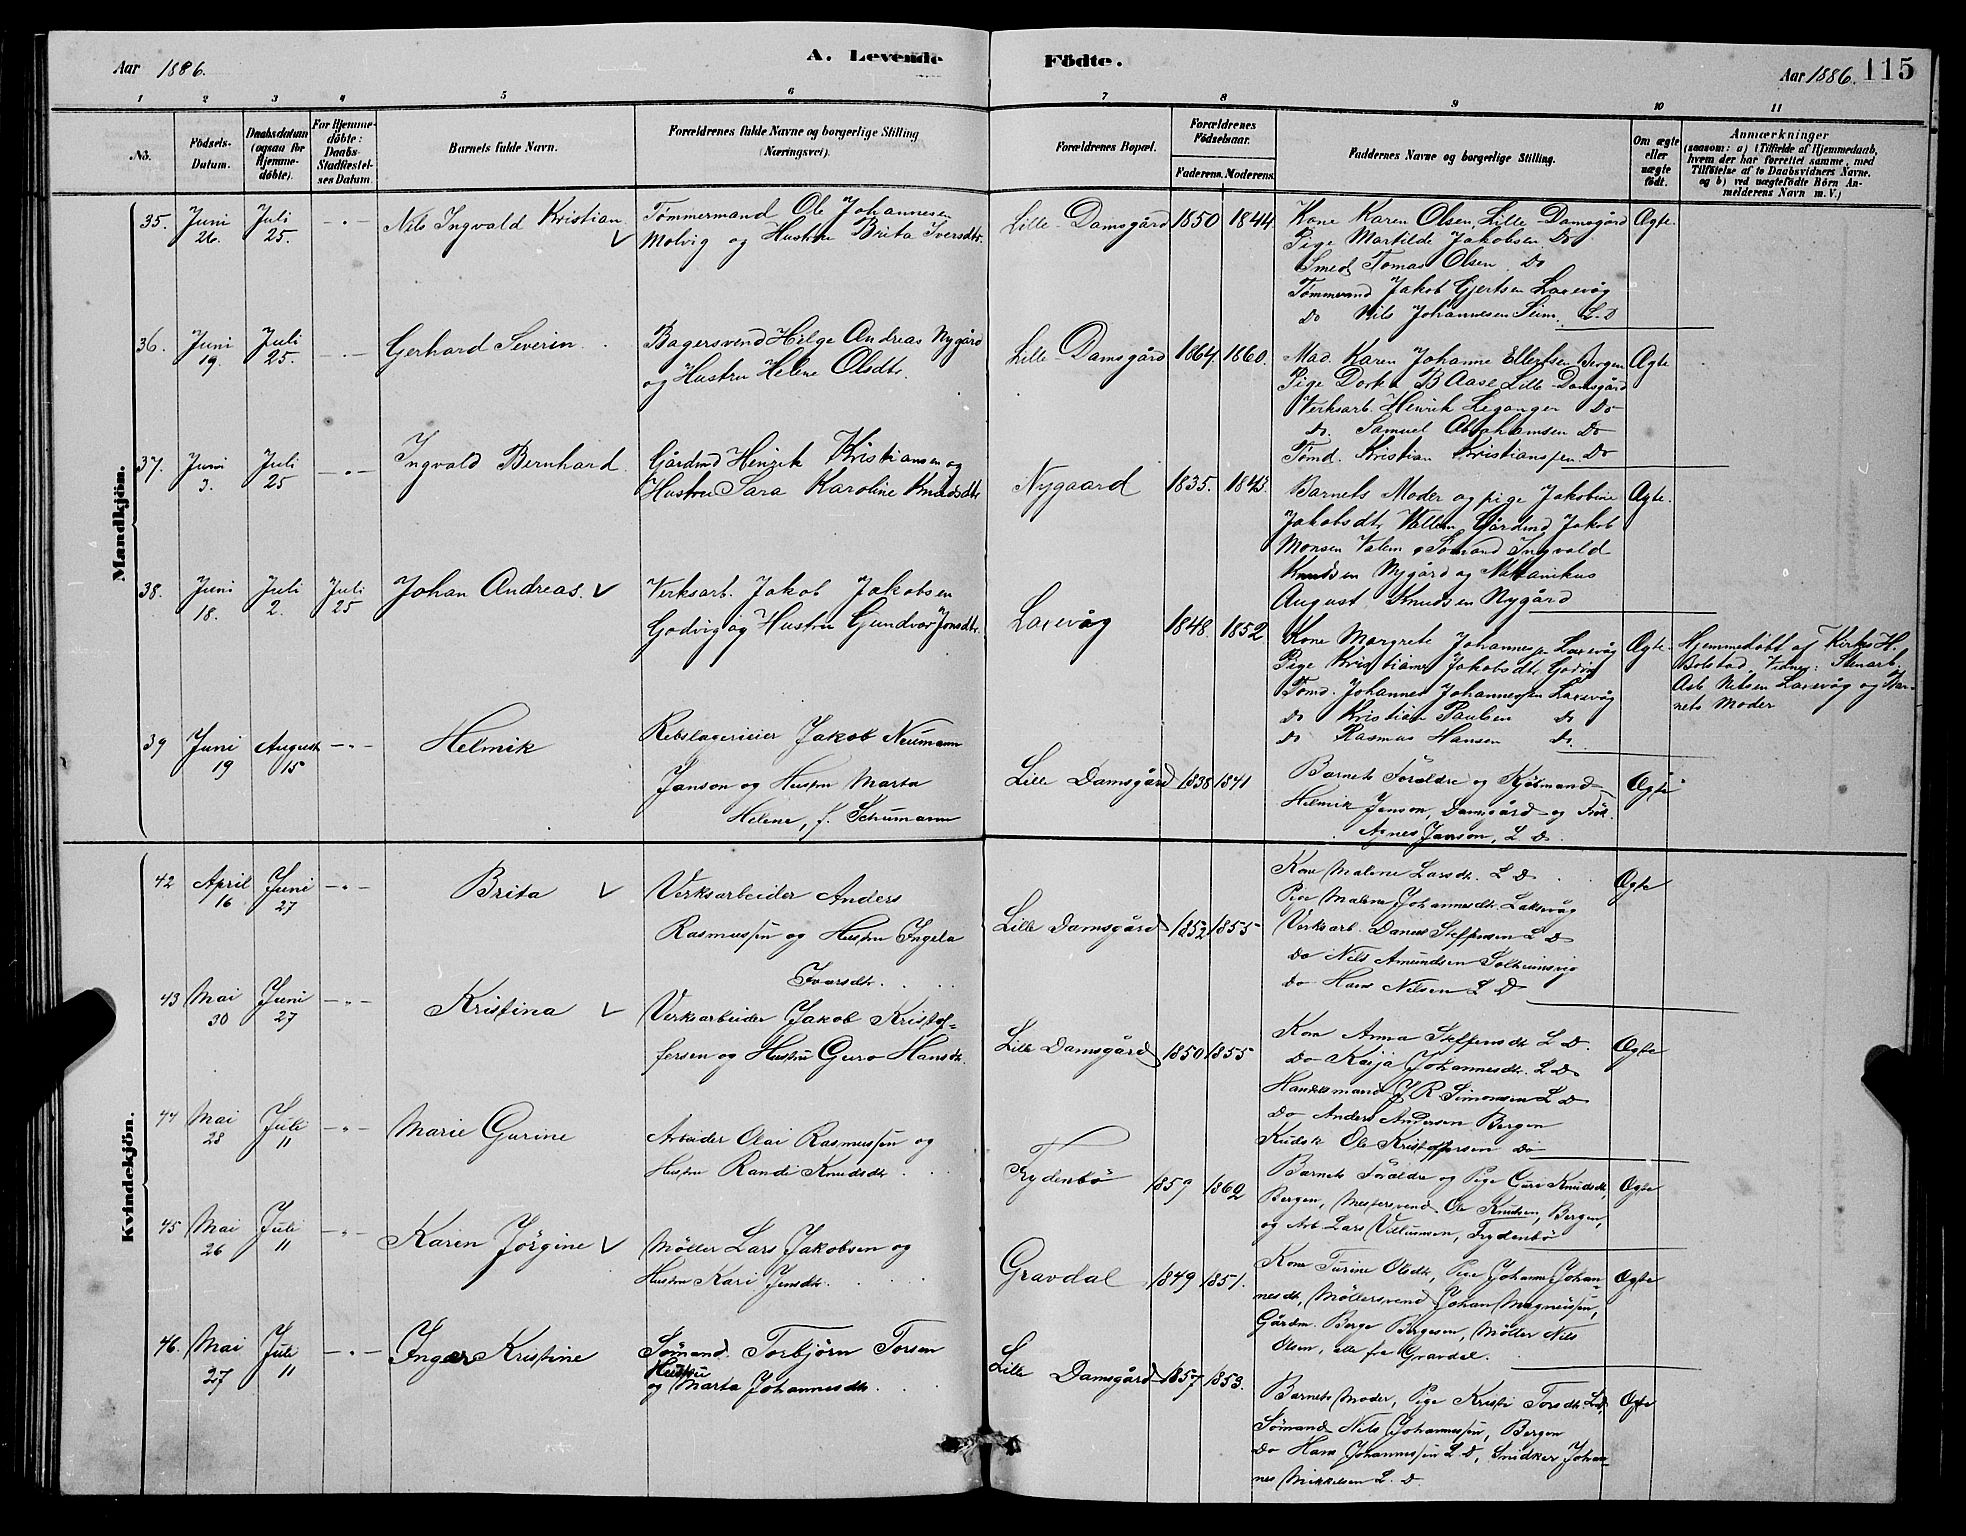 Aar 1886.
A. Levende Födte.
Aar 1886. 115
1 2 3 4 5 6 7 8 9 10 11
No. Födsels-Datum. Daabsdatum (ogsaa for Hjemme-döbte). For Hjemme-döbte: Daabs-Stadfæstel-ses Datum. Barnets fulde Navn. Forældrenes fulde Navne og borgerlige Stilling (Næringsvei). Forældrenes Bopæl. Forældrenes Födselsaar. Faderens. Moderens. Faddernes Navne og borgerlige Stilling. Om ægte eller uægte födt.
Anmærkninger
(saasom: a) i Tilfælde af Hjemmedaab,
hvem der har forrettet samme, med
Tilföielse af to Daabsvidners Navne.
og b) ved uægtefödte Börn An-
melderens Navn m. V.)
Mandkjön.
35. Juni 26. Juli 25. -"- Nils Ingvald Kristian V
Tömmermand Ole Johannesen
Molvig og Hustru Brita Iversdtr.
Lille Damsgård 1850 1844
Kone Karen Olsen, Lille Damsgård
Pige Martilde Jakobsen Do
Smed Tomas Olsen Do
Tömmermand Jakob Gjertsen Laxevåg
Do Nils Johannesen Seim L. D
Ægte.
36. Juni 19. Juli 25. -"- Gerhard Severin
Bagersvend Helge Andreas Nygård
og Hustru Helene Olsdtr.
Lille Damsgård 1864 1860.
Mad. Karen Johanne Ellertsen Bergen
Pige Dorthea B Aase Lille Damsgård
Verksarb. Henrik Leganger Do
do. Samuel Abrahamsen Do
Tömd. Kristian Kristianssen Do
Ægte
37. Juni 3. Juli 25 -"- Ingvald Bernhard.
Gårdmd Henrik Kristiansen og
Hustru Sara Karoline Knudsdtr
Nygaard 1835. 1843.
Barnets Moder og pige Jakobine
Jakobsdtr, Gårdmd Jakob
Monsen Sömand Ingvald
Knudsen Nygård og Mekanikus
August Knudsen Nygård
Ægte.
38. Juni 18. Juli 2. Juli 25 Johan Andreas. V
Verksarb. Jakob Jakobsen
Godvig og Hustru Gundvor Jonsdtr.
Laxevåg 1848. 1852
Kone Margrete Johannessen Laxevåg
Pige Kristiane Jakobsdtr Godvig
Tömd. Johannes Johannessen Laxevåg
do Kristian Paulsen do
do Rasmus Hansen do.
Ægte.
Hjemmedöbt af Kirkes. H.
Bolstad, Vidner: Stenarb.
Asb. Nilsen Laxevåg og Bar-
nets Moder
39 Juni 19 August 15 -"- Helmik
Rebslagerieier Jakob Neumann
Janson og Hustru Marta
Helene, f. Schumann
Lille Damsgård 1838 1841
Barnets Forældre og Kjöbmand
Helmik Janson, Damsgård og Frök.
Agnes Janson, L D.
Ægte
Kvindekjön.
42 April 16 Juni 27 -"- Brita V
Verksarbeider Anders
Rasmussen og Hustru Ingela
Ivarsdtr.
Lille Damsgård 1852 1855
Kone Malene Larsdtr. L D
Pige Malene Johannesdtr. Laksevåg
Verksarb. Danas Steffensen L D
do Nils Amundsen Solheimsvig
do Hans Nilsen L D
Ægte
43 Mai 30 Juni 27 -"- Kristina V
Verksarbeider Jakob Kristof-
fersen og Hustru Guro Hansdtr.
Lille Damsgård 1850 1855
Kone Anna Steffensdtr L D.
do Kaja Johannesdtr. L D
Handelsmand J R Simonsen L D
do Anders Andersen Bergen
Kudsk Ole Kristoffersen do
Ægte
44 Mai 28 Juli 11 -"- Marie Gurine
Arbeider Olai Rasmussen og
Hustru Randi Knudsdtr.
Frydenbö 1859 1862
Barnets Forældre og Pige Guri Knudsdtr,
Bergen, Mestersvend Ole Knutsen, Bergen,
og Arb. Lars Villumsen, Frydenbö
Ægte
45 Mai 26 Juli 11 -"- Karen Jörgine V
Möller Lars Jakobsen og
Hustru Kari Jensdtr.
Gravdal 1849 1851.
Kone Turine Olsdtr, Pige Johanne Johan-
nesdtr, Möllersvend Johan Magnussen,
Gårdm. Berge Bergesen, Möller Nils
Olsen, alle fra Gravdal.
Ægte
46. Mai 27 Juli 11 -"- Inger Kristine
Sömand. Torbjörn Torsen
Hustru
og Marta Johannesdtr.
Lille Damsgård 1857 1853.
Barnets Moder, Pige Kristi Torsdtr L D,
Sömand Nils Johannessen, Bergen
do Hans Johannessen L D, Snidker Johan-
nes Mikkelsen L. D.
Ægte